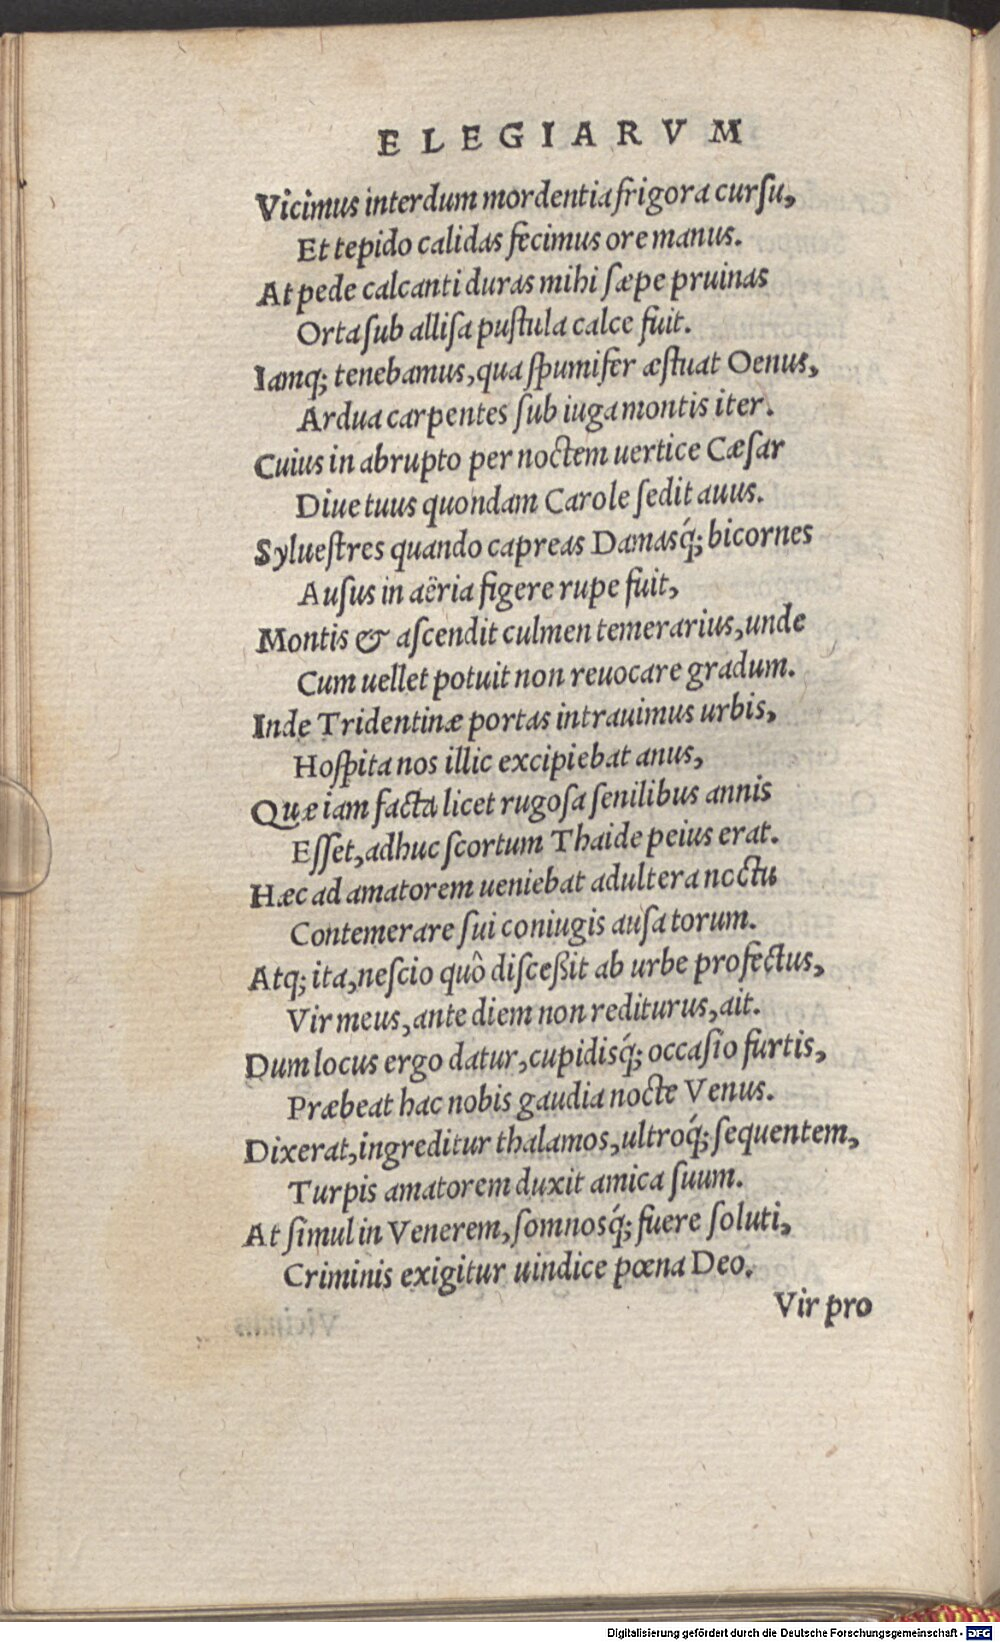 ELEGIARVM
Vicimus interdum mordentia frigora curſu,
Et tepido calidas fecimus ore manus.
At pede calcanti duras mihi ſæpe pruinas
Orta ſub alliſa puſtula calce fuit.
Iamq; tenebamus, qua ſpumifer æſtuat Oenus,
Ardua carpentes ſub iuga montis iter.
Cuius in abrupto per noctem uertice Cæſar
Diue tuus quondam Carole ſedit auus.
Sylueſtres quando capreas Damasq́; bicornes
Auſus in aëria figere rupe fuit,
Montis & aſcendit culmen temerarius, unde
Cum uellet potuit non reuocare gradum.
Inde Tridentinæ portas intrauimus urbis,
Hoſpita nos illic excipiebat anus,
Quæ iam facta licet rugoſa ſenilibus annis
Eſſet, adhuc ſcortum Thaide peius erat.
Hæc ad amatorem ueniebat adultera noctu
Contemerare ſui coniugis auſa torum.
Atq; ita, neſcio quô diſceßit ab urbe profectus,
Vir meus, ante diem non rediturus, ait.
Dum locus ergo datur, cupidisq́; occaſio furtis,
Præbeat hac nobis gaudia nocte Venus.
Dixerat, ingreditur thalamos, ultroq́; ſequentem,
Turpis amatorem duxit amica ſuum.
At ſimul in Venerem, ſomnosq́; fuere ſoluti,
Criminis exigitur uindice pœna Deo.
Vir pro
Digitalisierung gefördert durch die Deutsche Forschungsgemeinschaft - DFG